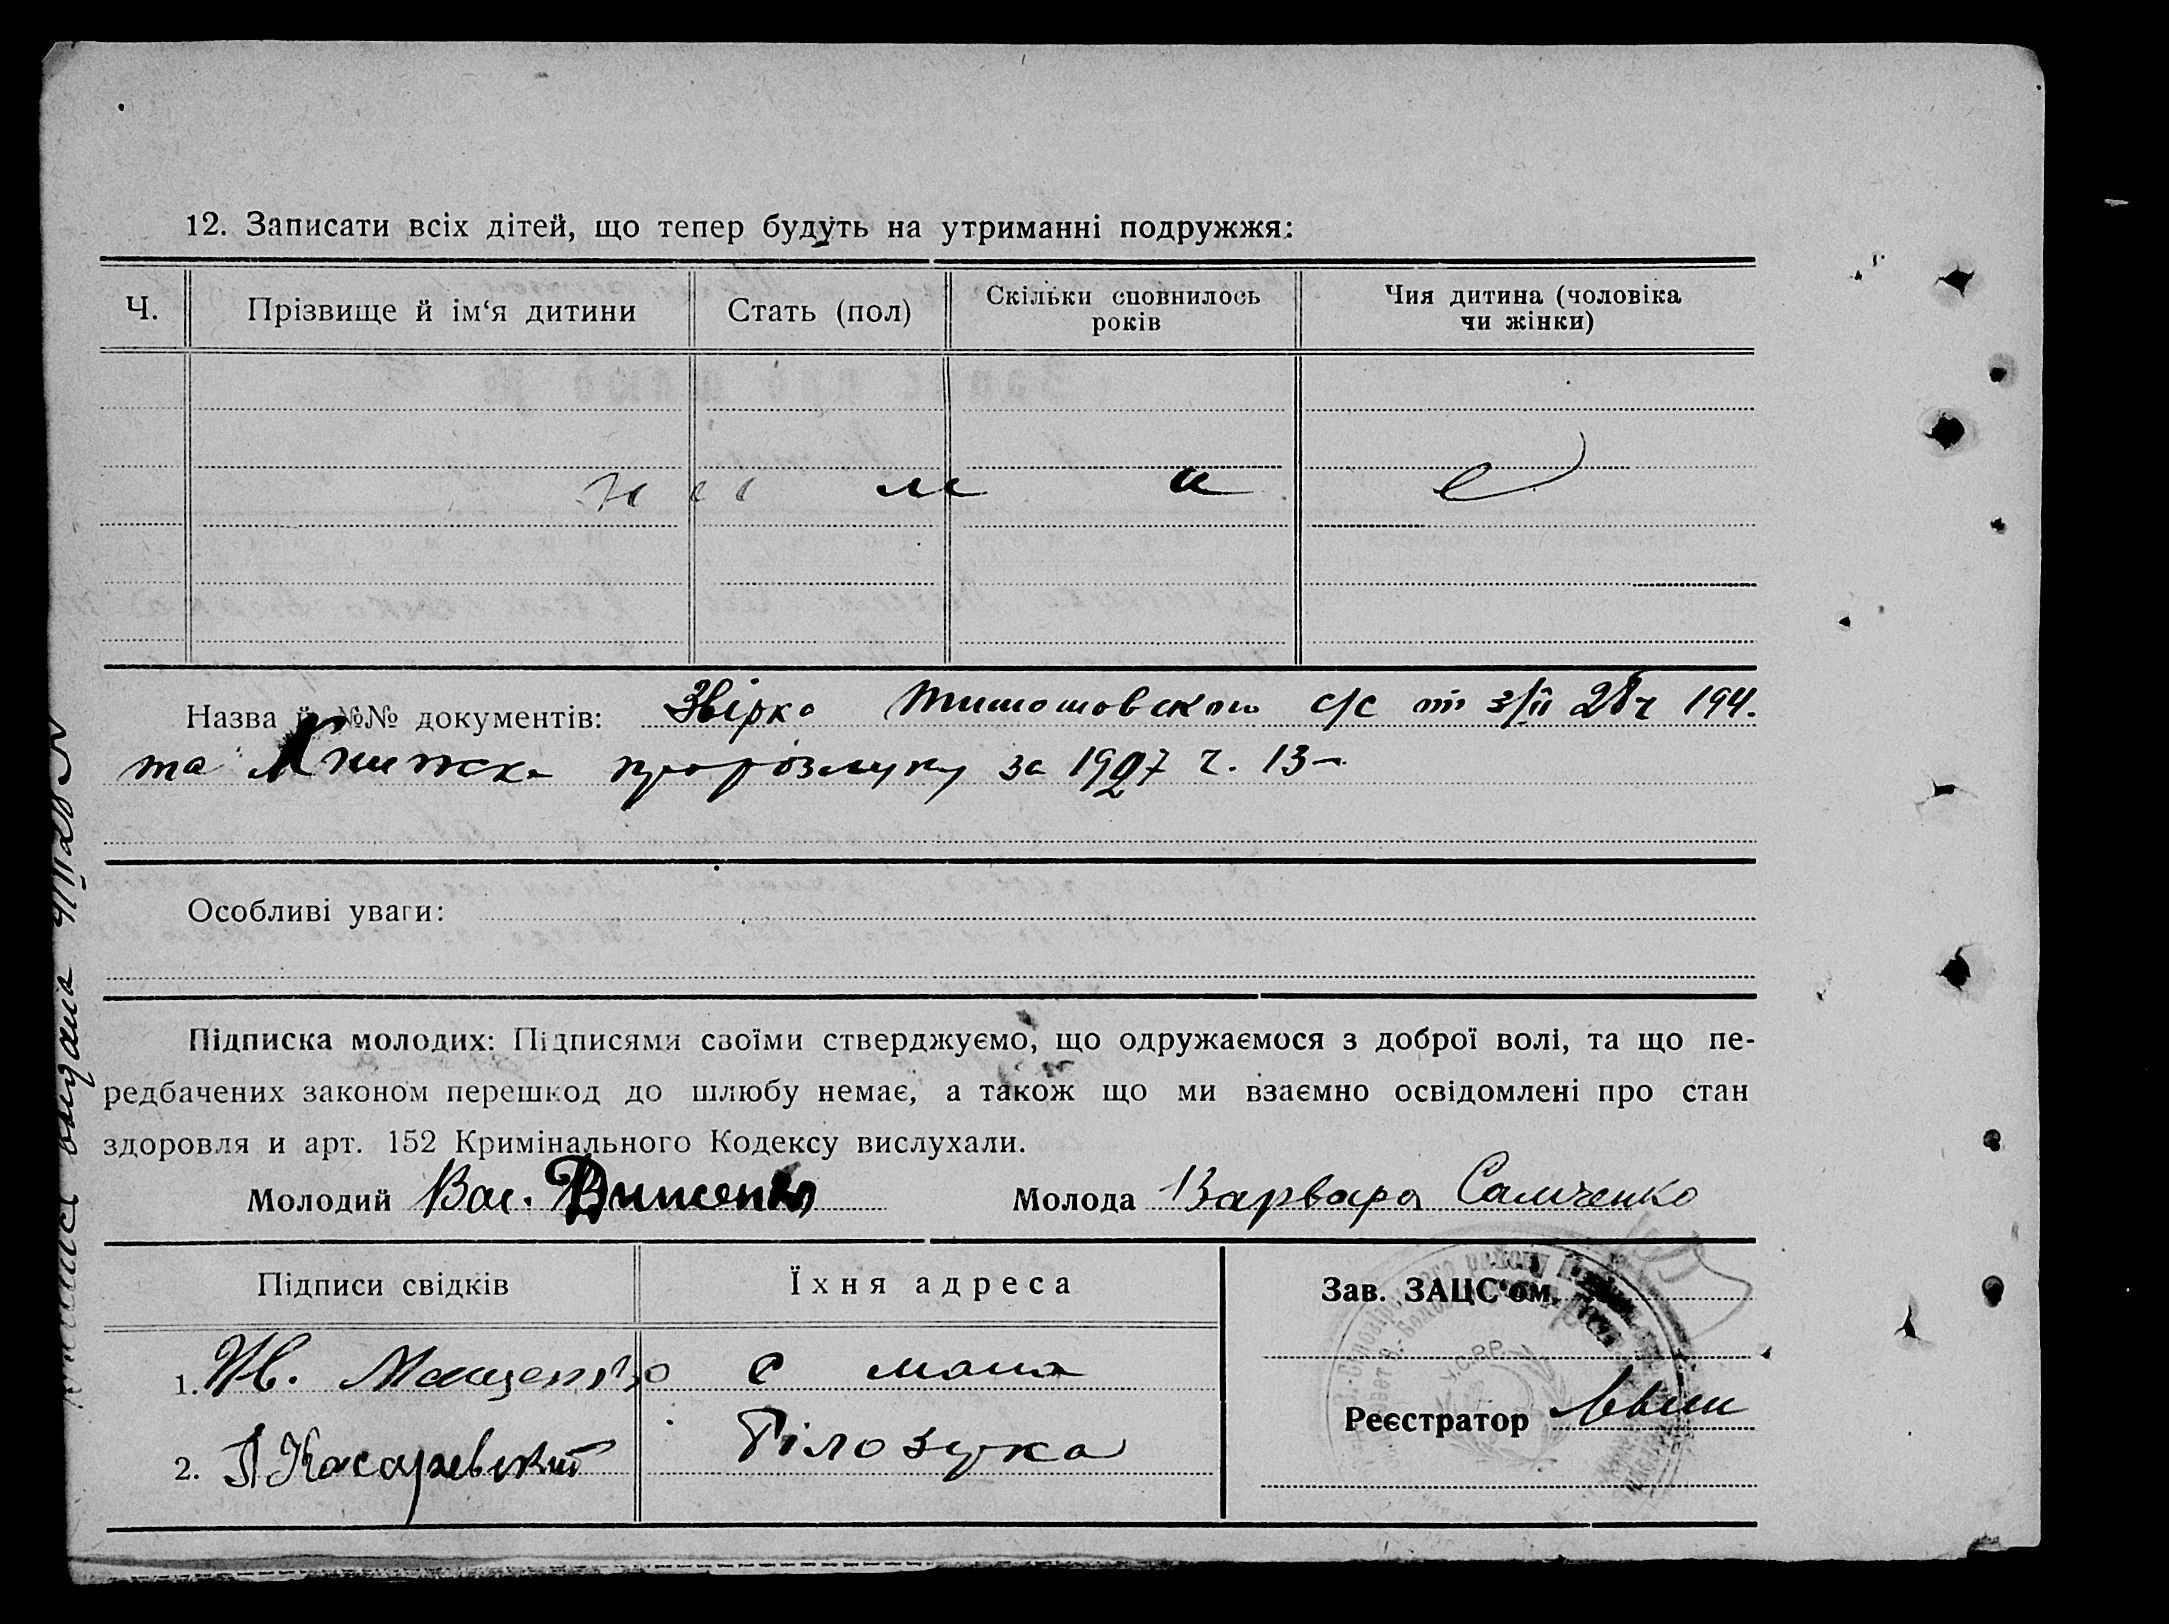 12. Записати всіх дітей, що тепер будуть на утриманні подружжя:
Ч.
Прізвище й ім‘я дитини
Стать (пол)
Скільки сповнилось
років
Чия дитина (чоловіка
чи жінки)
Назва й №№ документів: с/с 28 р 194.
та Книжка про розлуку за 1927 р. 13
Особливі уваги:
Підписка молодих: Підписями своїми стверджуємо, що одружаємося з доброї волі, та що пе-
редбачених законом перешкод до шлюбу немає, а також що ми взаємно освідомлені про стан
здоровля и арт. 152 Кримінального Кодексу вислухали.
Молодий Вас.
Молода Варвара Самченко
Підписи свідків
Їхня адреса
Зав. ЗАЦС‘ом,
1. Ів. с мала
Реєстратор
2. Білозурка
У.С.Р.Р.